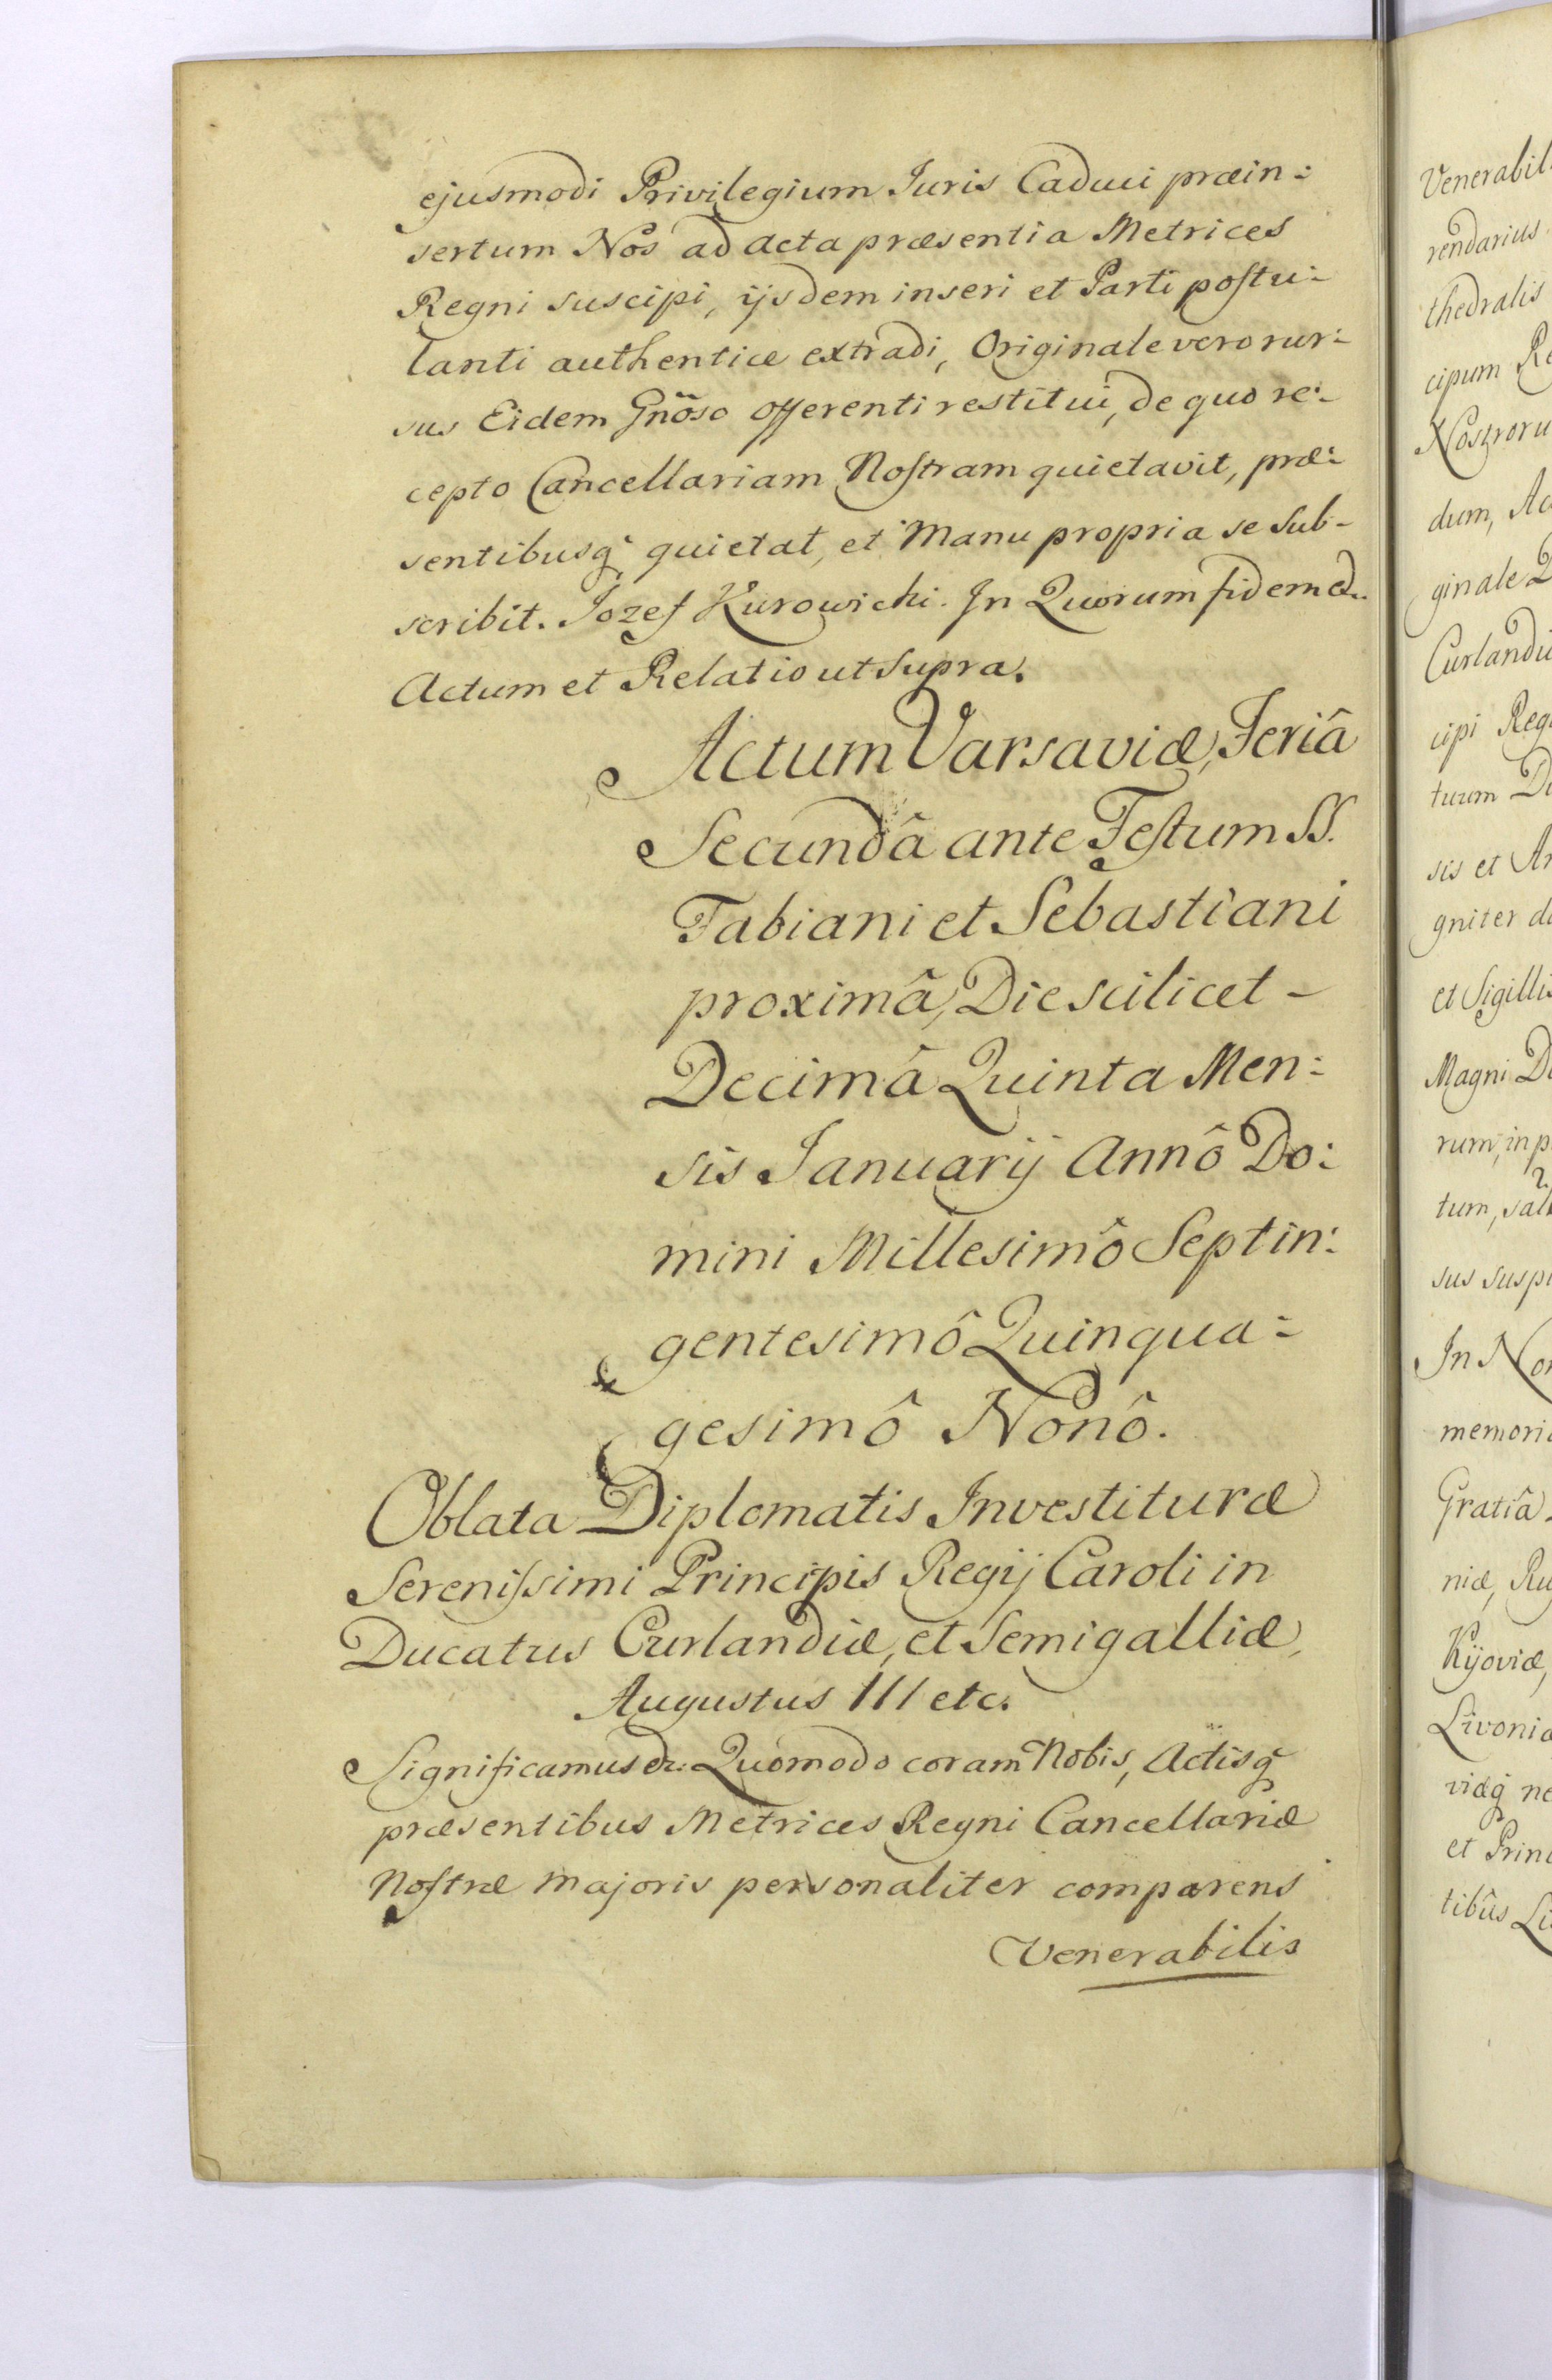 ejusmodi Privilegium Iuris Caduci præin:
sertum Nos ad acta præsentia Metrices
Regni suscipi, ijsdem inseri et Parti postu:
lanti authentice extradi, Originale vero rur:
sus Eidem Gnõso offerenti restitui, de quo re:
cepto Cancellariam Nostram quietavit, præ:
sentibusq́ quietat, et Manu propria se Sub-
scribit. Jozef Kurowicki. In Quorum fidem &.
Actum et Relatio ut Supra.
Actum Varsaviæ, Feriâ
Secundâ ante Festum SS.
Fabiani et Sebastiani
proximâ, Die scilicet -
Decimâ Quinta Men:
sis Januarij Annô Do:
mini Millesimô Septin:
gentesimô Quinqua:
gesimô Nonô.
Oblata Diplomatis Investituræ
Serenissimi Principis Regij Caroli in
Ducatus Curlandiæ, et Semigalliæ,
Augustus III etc.
Significamus &: Quomodo coram Nobis, Actisq́
præsentibus Metrices Regni Cancellariæ
Nostræ Majoris personaliter comparens
Venerabilis
Venerabil
rendarius
thedralis
cipum Re
Nostroru
dum, Ac
ginale Q
Curlandi
cipi Reg
tuum Du
sis et Ar
gniter de
et Sigillis
Magni D
rum, in p
tum, sal
sus suspi
In Nom
memori
Gratiâ
niæ, Ru
Kijoviæ,
Livoniæ
viæq́ ne
et Prin
tibûs Li